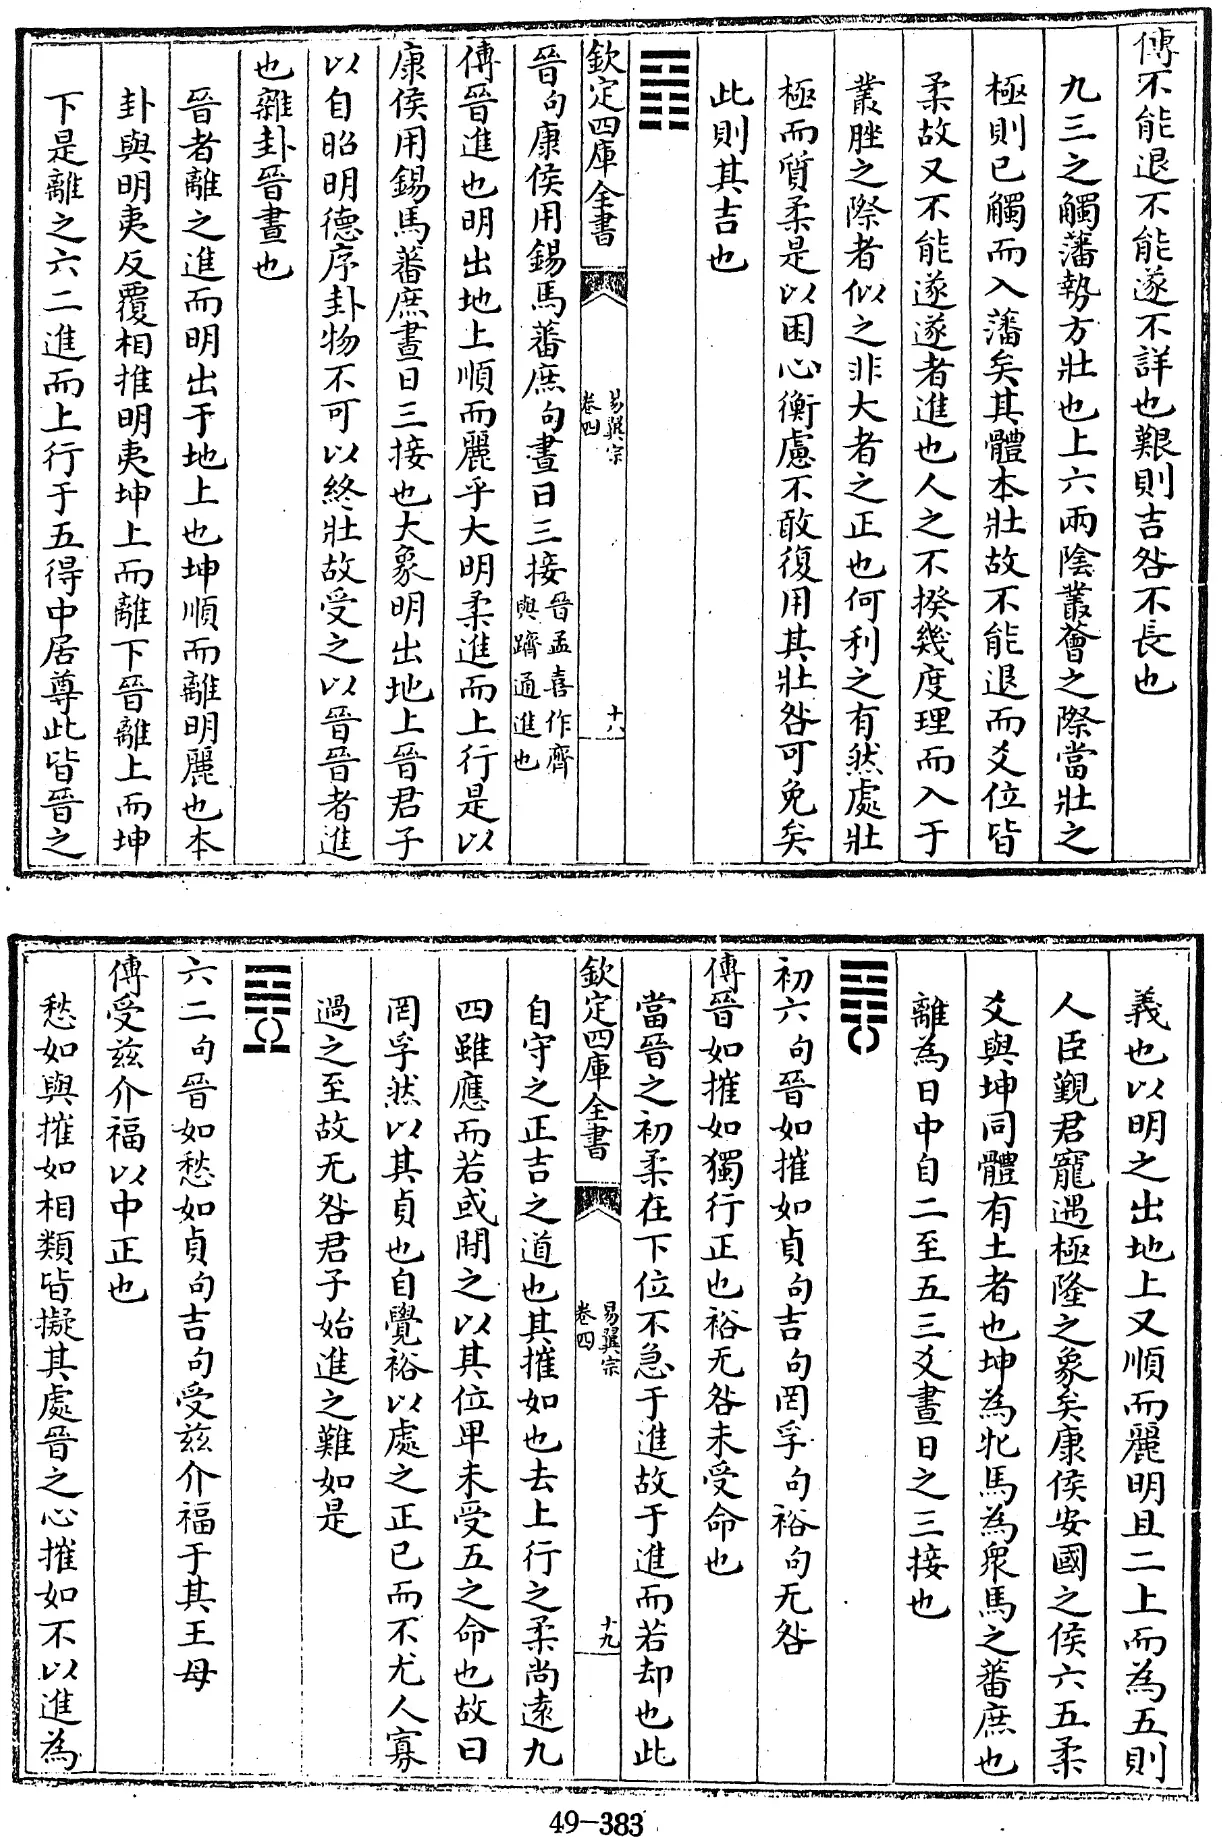 傳不能退不能遂不詳也艱則吉咎不長也
九三之觸藩勢方壯也上六兩陰叢薈之際當壯之
極則已觸而入藩矣其體本壯故不能退而爻位皆
柔故又不能遂遂者進也人之不揆幾度理而入于
叢脞之際者似之非大者之正也何利之有然處壯
極而質柔是以困心衡慮不敢復用其壯咎可免矣
此則其吉也
欽定四庫全書
易翼宗
卷四
十八
晉句康侯用錫馬蕃庶句晝日三接晉孟喜作齊
與躋通進也
傳晉進也明出地上順而麗乎大明柔進而上行是以
康侯用錫馬蕃庶晝日三接也大象明出地上晉君子
以自昭明德序卦物不可以終壯故受之以晉晉者進
也雜卦晉晝也
晉者離之進而明出于地上也坤順而離明麗也本
卦與明夷反覆相推明夷坤上而離下晉離上而坤
下是離之六二進而上行于五得中居尊此皆晉之
義也以明之出地上又順而麗明且二上而為五則
人臣覲君寵遇極隆之象矣康侯安國之侯六五柔
爻與坤同體有土者也坤為牝馬為衆馬之蕃庶也
離為日中自二至五三爻晝日之三接也
初六句晉如摧如貞句吉句罔孚句裕句无咎
傳晉如摧如獨行正也裕无咎未受命也
當晉之初柔在下位不急于進故于進而若却也此
欽定四庫全書
易翼宗
卷四
十九
自守之正吉之道也其摧如也去上行之柔尚遠九
四雖應而若或閒之以其位卑未受五之命也故曰
罔孚然以其貞也自覺裕以處之正已而不尤人寡
過之至故无咎君子始進之難如是
六二句晉如愁如貞句吉句受兹介福于其王母
傳受兹介福以中正也
愁如與摧如相類皆擬其處晉之心摧如不以進為
49-383